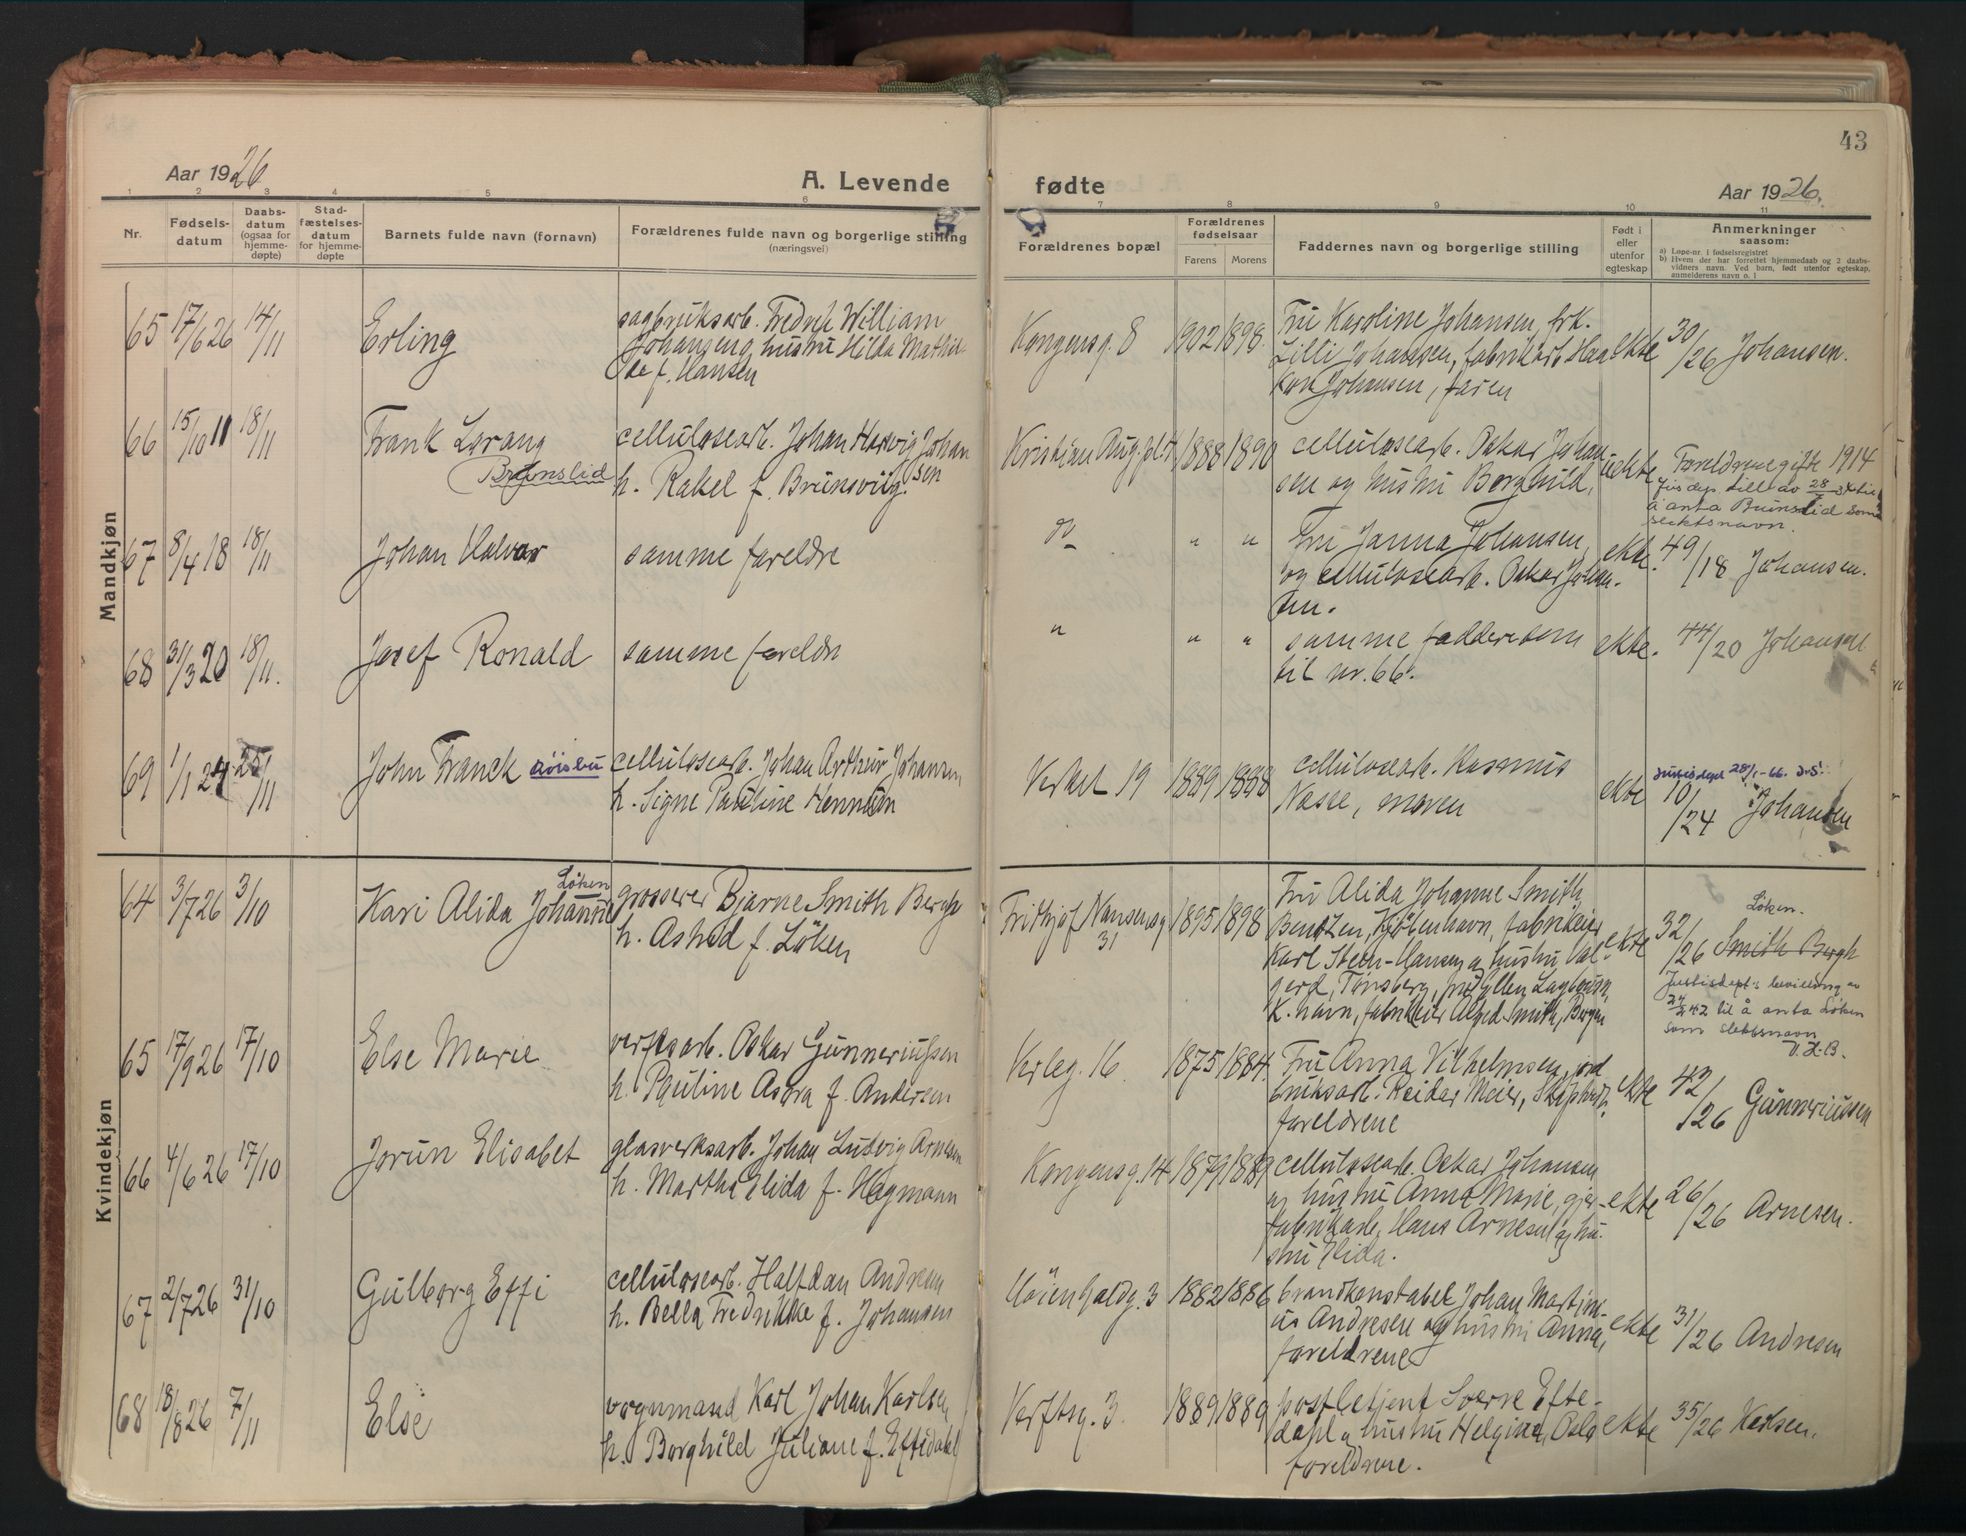 43
Aar 1926
A. Levende
fødte
Aar 1926.
1 2 3 4 5 6 7 8 9 10 11
Nr.
Fødselsdatum
Daabsdatum (ogsaa for hjemmedøpte)
Stadfæstelsesdatum for hjemmedøpte
Barnets fulde navn (fornavn)
Forældrenes fulde navn og borgerlige stilling (næringsvei)
Forældrenes bopæl
Forældrenes fødselsaar
Farens Morens
Faddernes navn og borgerlige stilling
Født i eller utenfor egteskap
Anmerkninger saasom:
a) Løpe-nr. i fødselsregistret
b) Hvem der har forrettet hjemmedaab og 2 daabsvidners navn. Ved barn, født utenfor egteskap, anmelderens navn o. l
Mandkjøn
65 17/6 26 14/11 Erling
sagbruksarb. Fredrik William
Johansen og hustru Hilda Mathil
de f. Hansen
Kongensg. 8 1902 1898.
Fru Karoline Johansen, frk.
Lilli Johanssen, fabrikarb.
Johansen, faren
ekte 30/26 Johansen.
66 15/10 11 18/11 Frank Lorang
Brynslid
cellulosearb. Johan Hartvig Johan
sen
h. Rakel f. Brunsvig.
Kristian Aug. pl. 1888 1890
cellulosearb. Oskar Johan
sen og hustru Borghild,
uekte Foreldrene gifte 1914
til
å anta som
slektsnavn.
67 8/4 18 18/11 Johan Halvar
samme foreldre
do " "
Fru Janna Johansen,
og cellulosearb. Oskar Johan-
sen.
ekte. 49/18 Johansen.
68 31/3 20 18/11. Josef Ronald
samme foreldre
" " "
samme faddere som
til nr. 66.
ekte. 44/20 Johansen
69 1/1 24 25/11 John Franck
cellulosearb. Johan Arthur Johansen
h. Signe Pauline
Verket 19 1889 1888
cellulosearb. Rasmus
moren
ekte
Justisdept 28/1-66.
10/24 Johansen
Kvindekjøn
64 3/7 26 3/10
Løken
Kari Alida Johanne
grosserer Bjarne Smith Bergh
h. Astrid f. Løken
Frithjof Nansensg 31 1895 1898
Fru Alida Johanne Smith
Bentzen, Kjøbenhavn, fabrikeier
Karl Steen-Hansen og hustru Val-
gerd, Tønsberg,
K.havn, fabrikeier Smith, Bergen
ekte 32/26
Løken.
Smith Bergh
Justisdept:s bevilling av
42 til å anta Løken
som slektsnavn
65 17/9 26 17/10 Else Marie
verftsarb. Oskar Gunneriussen
h. Pauline Asora f. Andersen
Verleg. 16. 1875 1884.
Fru Anna Vilhelmsen,
bruksarb. Reidar Meier,
foreldrene
ekte 42/126 Gunneriussen
66 4/6 26 17/10 Jorun Elisabet
glasverksarb. Johan Ludvig Arnesen
h. Martha Elida f. Hegmann
Kongensg. 14 1879 1889
cellulosearb. Oskar Johansen
og hustru Anna Marie,
fabrikarb. Hans Arnesen og hu-
stru Elida.
ekte 26/26 Arnesen.
67 2/7 26 31/10 Gulborg Effi
cellulosearb. Halfdan Andresen
h. Bella Fredrikke f. Johansen
Høienhaldg. 3 1882 1886
brandkonstabel Johan Martini-
us Andresen og hustru Anna,
foreldrene
ekte 31/26 Andresen
68 18/8 26 7/11 Else
vognmand Karl Johan Karlsen
h. Borghild Juliane f. Eftedahl
Verftsg. 3. 1889 1889
postbetjent Sverre Efte-
dahl og hustru Helgine, Oslo
foreldrene.
ekte 35/26 Karlsen.